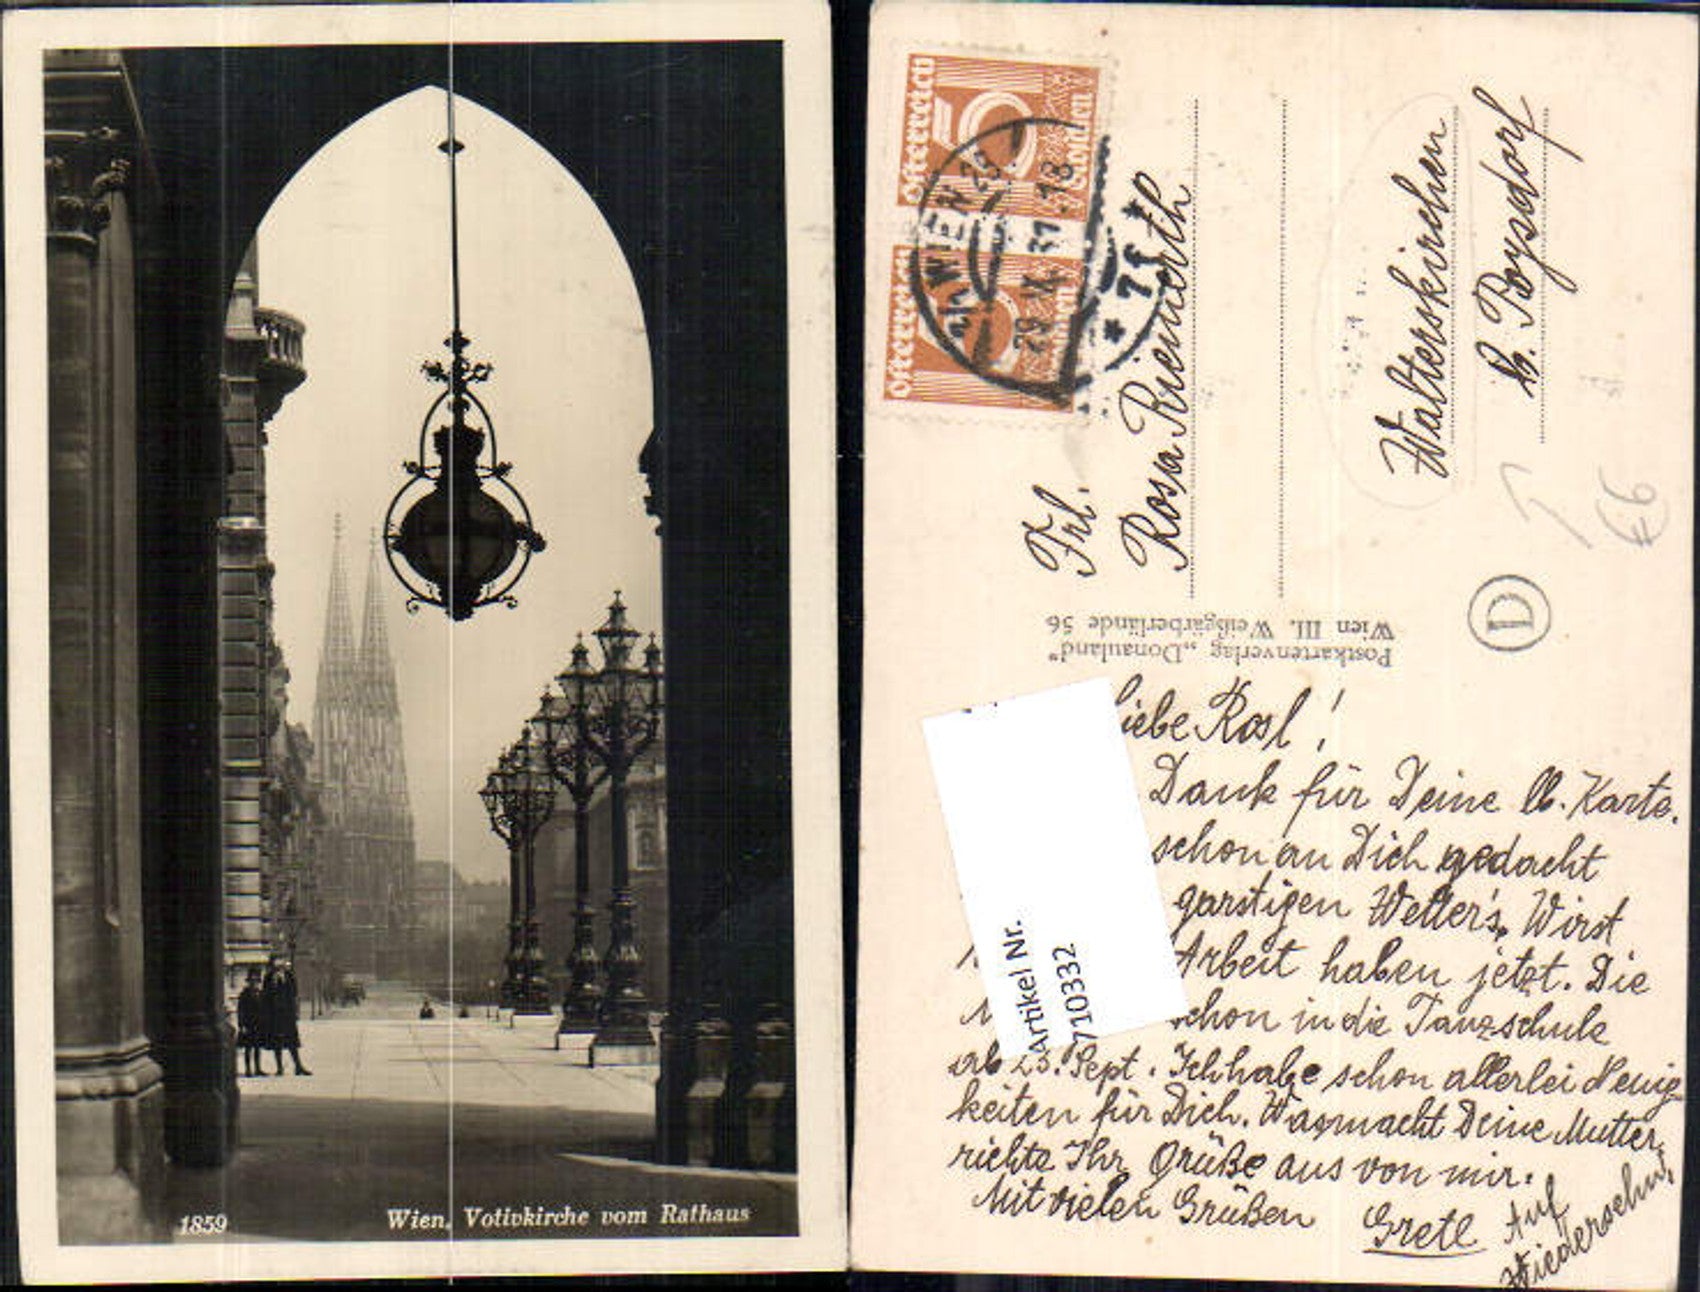 1859
Wien. Votivkirche vom Rathaus
Österreich
5
Groschen
Österreich
5
Groschen
WIEN 29
29. IX. 31. 18
* 7f *
Frl.
Rosa
Walterskirchen
b. Poysdorf
Postkartenverlag „Donauland"
Wien III. Weißgärberlände 56
D
€6
Artikel Nr.
710332
liebe Rosl!
Dank für Deine lb. Karte.
schon an Dich gedacht
garstigen Wetter's. Wirst
Arbeit haben jetzt. Die
schon in die Tanzschule
ab 23. Sept. Ich habe schon allerlei Neuig
keiten für Dich. Was macht Deine Mutter,
richte Ihr Grüße aus von mir.
Mit vielen Grüßen Gretl
Auf
Wiedersehn!